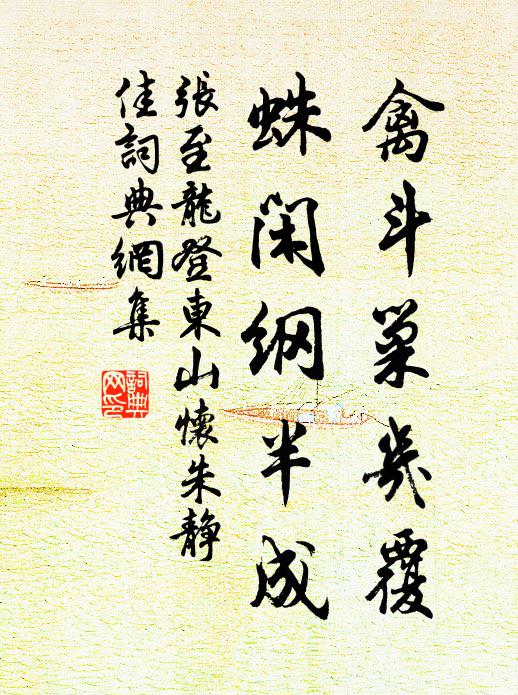 禽斗巢几覆
蛛闲网半成
張至龍登東山懷朱静
佳詞典網集
詞典
网印